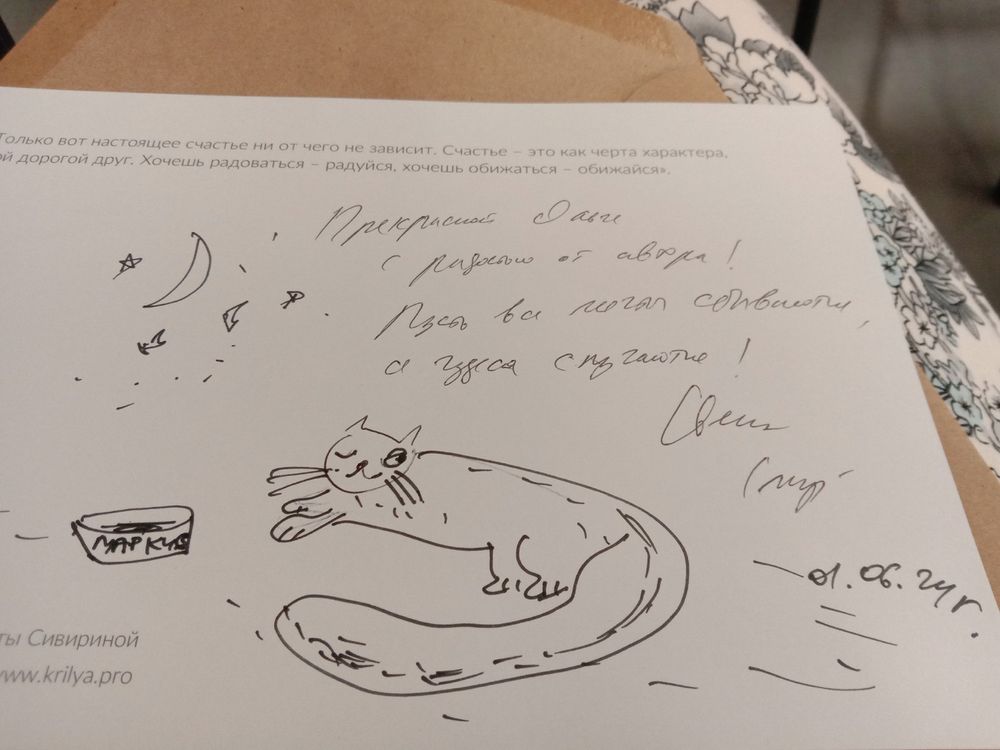 Только вот настоящее счастье ни от чего не зависит. Счастье – это как черта характера,
ой дорогой друг. Хочешь радоваться – радуйся, хочешь обижаться – обижайся».
Прекрасной Ольге
с радостью от автора!
Пусть все мечты сбываются,
а чудеса случаются!
01.06.24г.
МАРКИЗ
ты Сивириной
www.krilya.pro